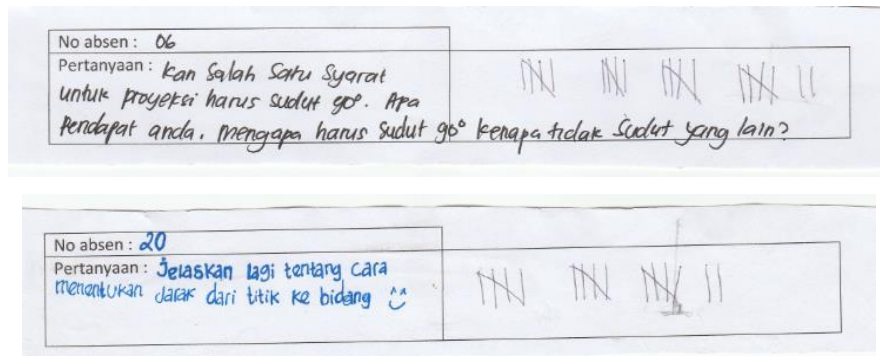 No absen : 06
Pertanyaan : Kan Salah Satu Syarat
untuk proyeksi harus sudut 90°. Apa
Pendapat anda. mengapa harus sudut 90° kenapa tidak Sudut yang lain?
No absen : 20
Pertanyaan : Jelaskan lagi tentang cara
menentukan Jarak dari titik ke bidang